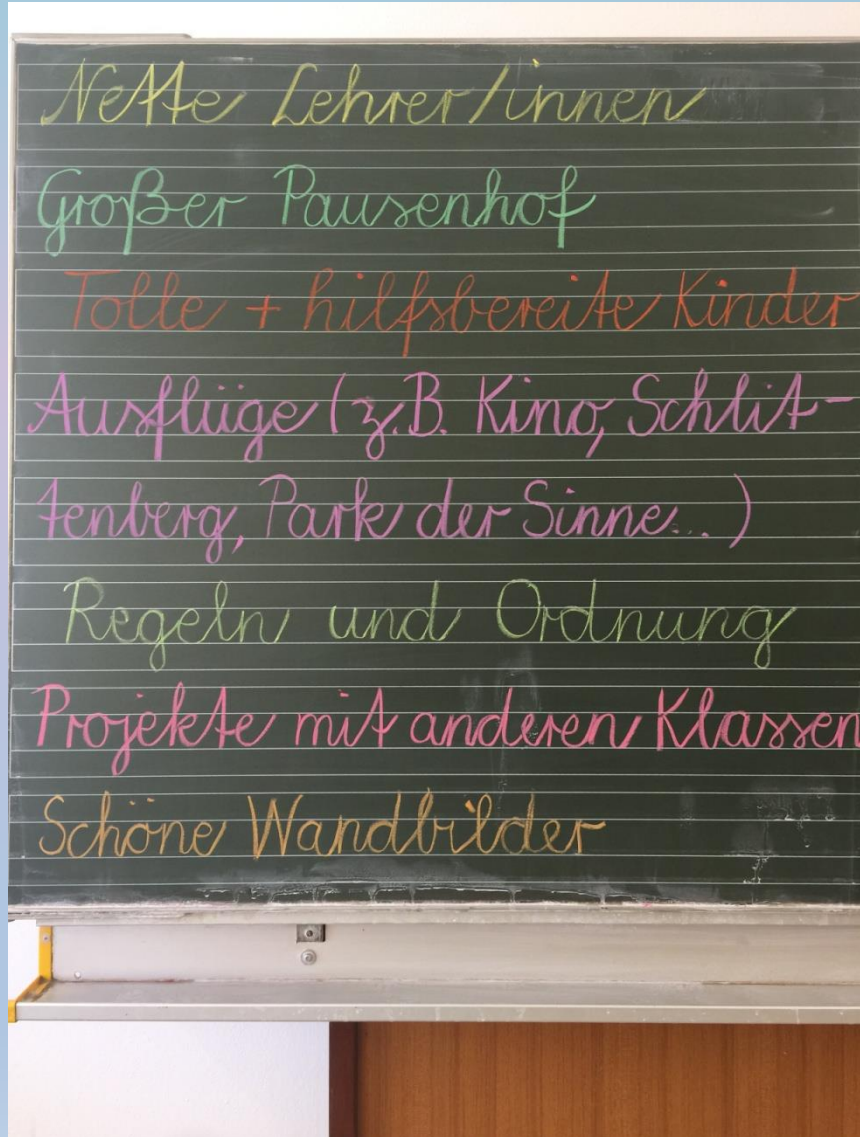 Nette Lehrer/innen
Großer Pausenhof
Tolle + hilfsbereite Kinder
Ausflüge (z.B. Kino, Schlit-
tenberg, Park der Sinne...)
Regeln und Ordnung
Projekte mit anderen Klassen
Schöne Wandbilder